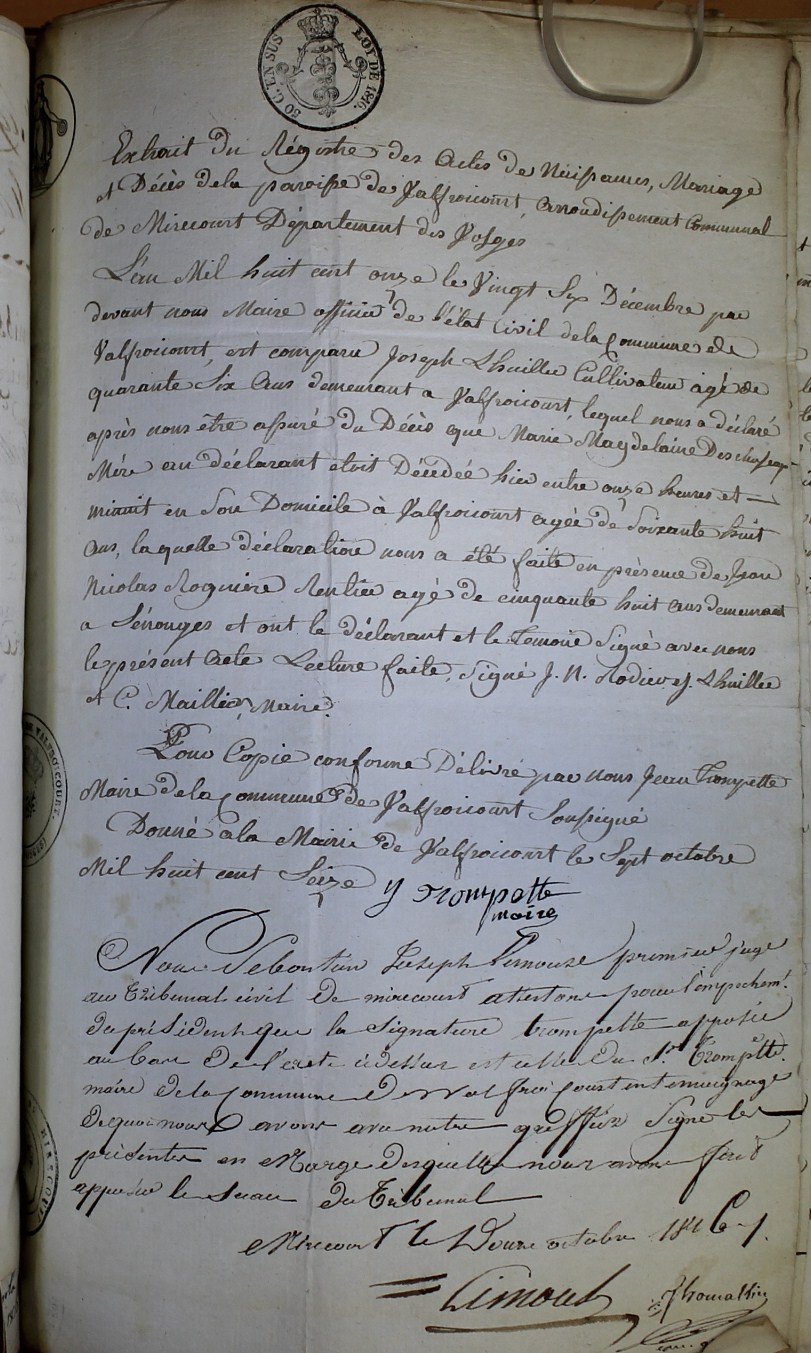 50 C. EN SUS LOI DE 1816.
Extrait du Régistre des Actes de Naissances, Mariage
et Décès de la paroisse de Valfroicourt, arrondissement Communal
de Mirecourt Département des Vosges
L'an Mil huit cent onze le Vingt Six Décembre par
devant nous Maire officier de l'état Civil de la Commune de
Valfroicourt, est comparu Joseph Lhuillier Cultivateur agé de
quarante Six Ans demeurant a Valfroicourt, lequel nous a déclaré
après nous être assuré du Décès que Marie Magdelaine
Mére au déclarant etoit Décédée hier entre onze heures et
minuit en Son Domicile à Valfroicourt agée de Soixante huit
ans, la quelle déclaration nous a été faite en présence de Jean
Nicolas Rentier agé de cinquante huit ans demeurant
a Sénonges et ont le déclarant et le temoin Signé avec nous
le présent acte Lecture faite, Signé J. N. J. Lhuillier
et C. Maillier, Maire.
Pour Copie conforme Délivré par nous Jean Trompette
Maire de la Commune de Valfroicourt Soussigné
Donné a la Mairie de Valfroicourt le Sept octobre
Mil huit cent Seize y trompette
maire
Nous Joseph premier juge
au Tribunal civil de mirecourt attestons pour l'empechem.t
du président que la signature trompette apposée
au bas de l'acte cidessus est celle du S.r Trompette
maire de la commune de Valfroicourt en temoignage
de quoi nous avons avec notre greffier Signé les
présentes en Marge desquelles nous avons fait
apposer le Sceau du Tribunal
Mirecourt le Douze octobre 1816
Thomassin